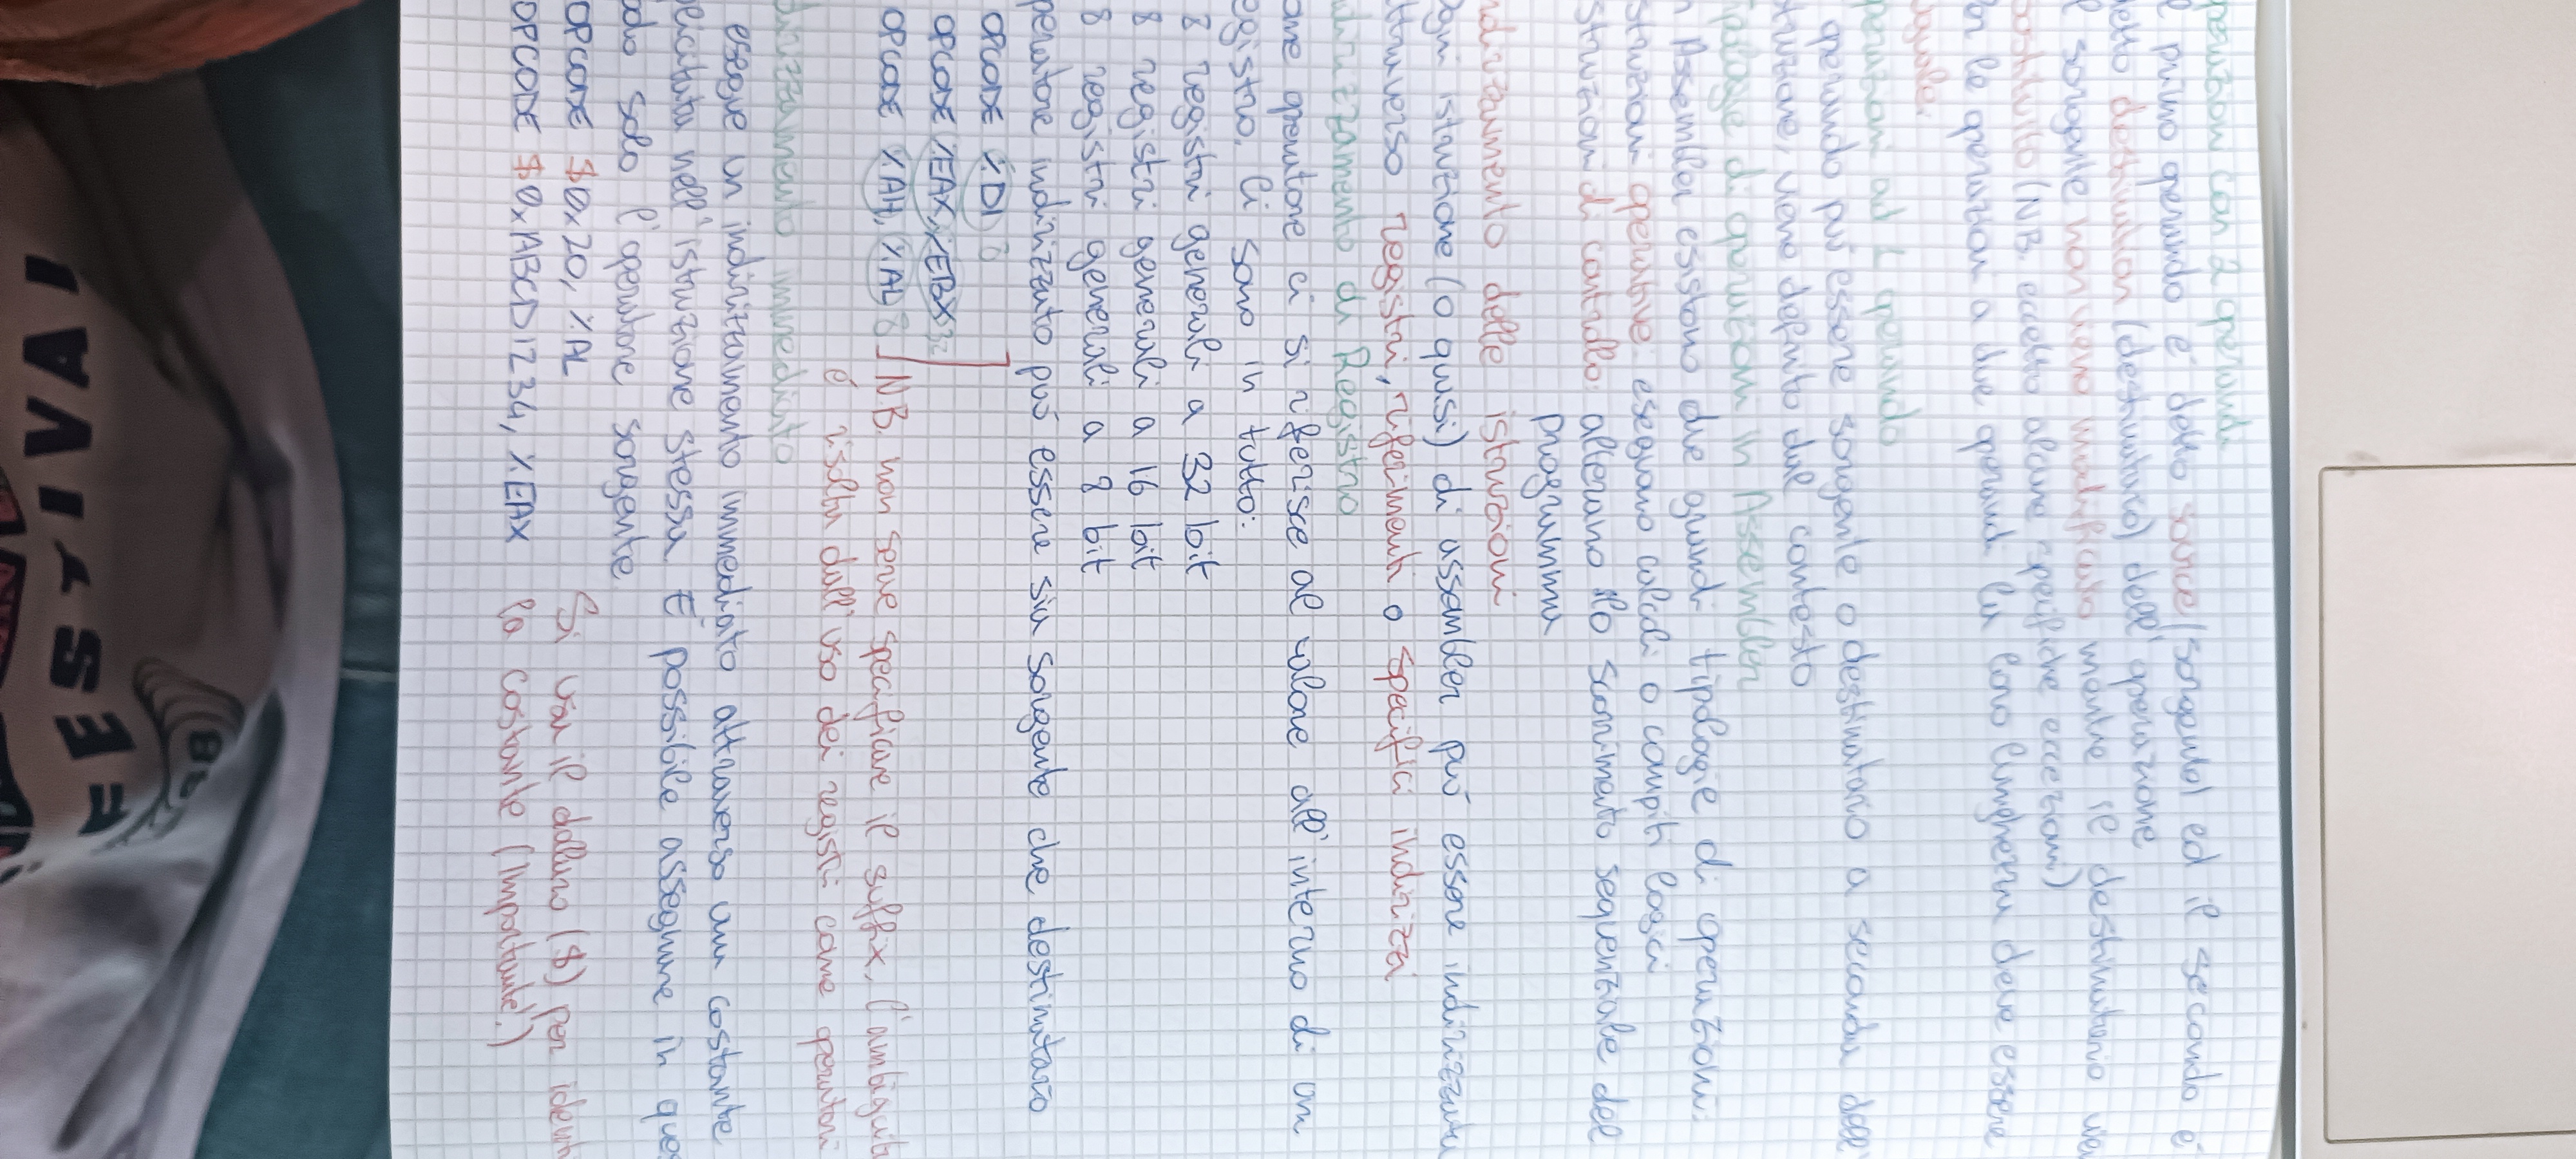 perazioni con 2 operandi
l primo operando è detto source/sorgente ed il secondo è
detto destination (destinatario) dell'operazione
l sorgente non viene modificato mentre il destinatario
sostituito (N.B. eccetto alcune specifiche eccezioni)
le operazioni a due operandi la loro lunghezza deve essere
uguale.
perazioni ad 1 operando
operando può essere sorgente o destinatario a seconda dell
struzione, viene definito dal contesto
Tipologie di operazioni in Assembler
n Assembler esistono due grandi tipologie di operazioni:
struzioni operative: eseguono calcoli o compiti logici
struzioni di controllo: alterano lo scorrimento sequenziale del
programma
ndirizzamento delle istruzioni
ogni istruzione (o quasi) di assembler può essere indirizzata
ttraverso registri, riferimenti o specifici indirizzi
ndirizzamento di Registro
ome operatore ci si riferisce al valore all'interno di un
egistro. Ci sono in tutto:
8 registri generali a 32 bit
8 registri generali a 16 bit
8 registri generali a 8 bit
peratore indirizzato può essere sia sorgente che destinatario
OPCODE %DI
OPCODE %EAX, %EBX 32
OPCODE %AH, %AL 8 N.B. non serve specificare il suffix, l'ambiguità
è risolta dall'uso dei registri come operatori
dirizzamento immediato
esegue un indirizzamento immediato attraverso una costante
pecificata nell'istruzione stessa. È possibile assegnare in ques
odo solo l'operatore sorgente.
OPCODE $0x20, %AL Si usa il dollaro ($) per identi
OPCODE $0xABCD1234, %EAX la costante (Importante!)
FESTIVAL